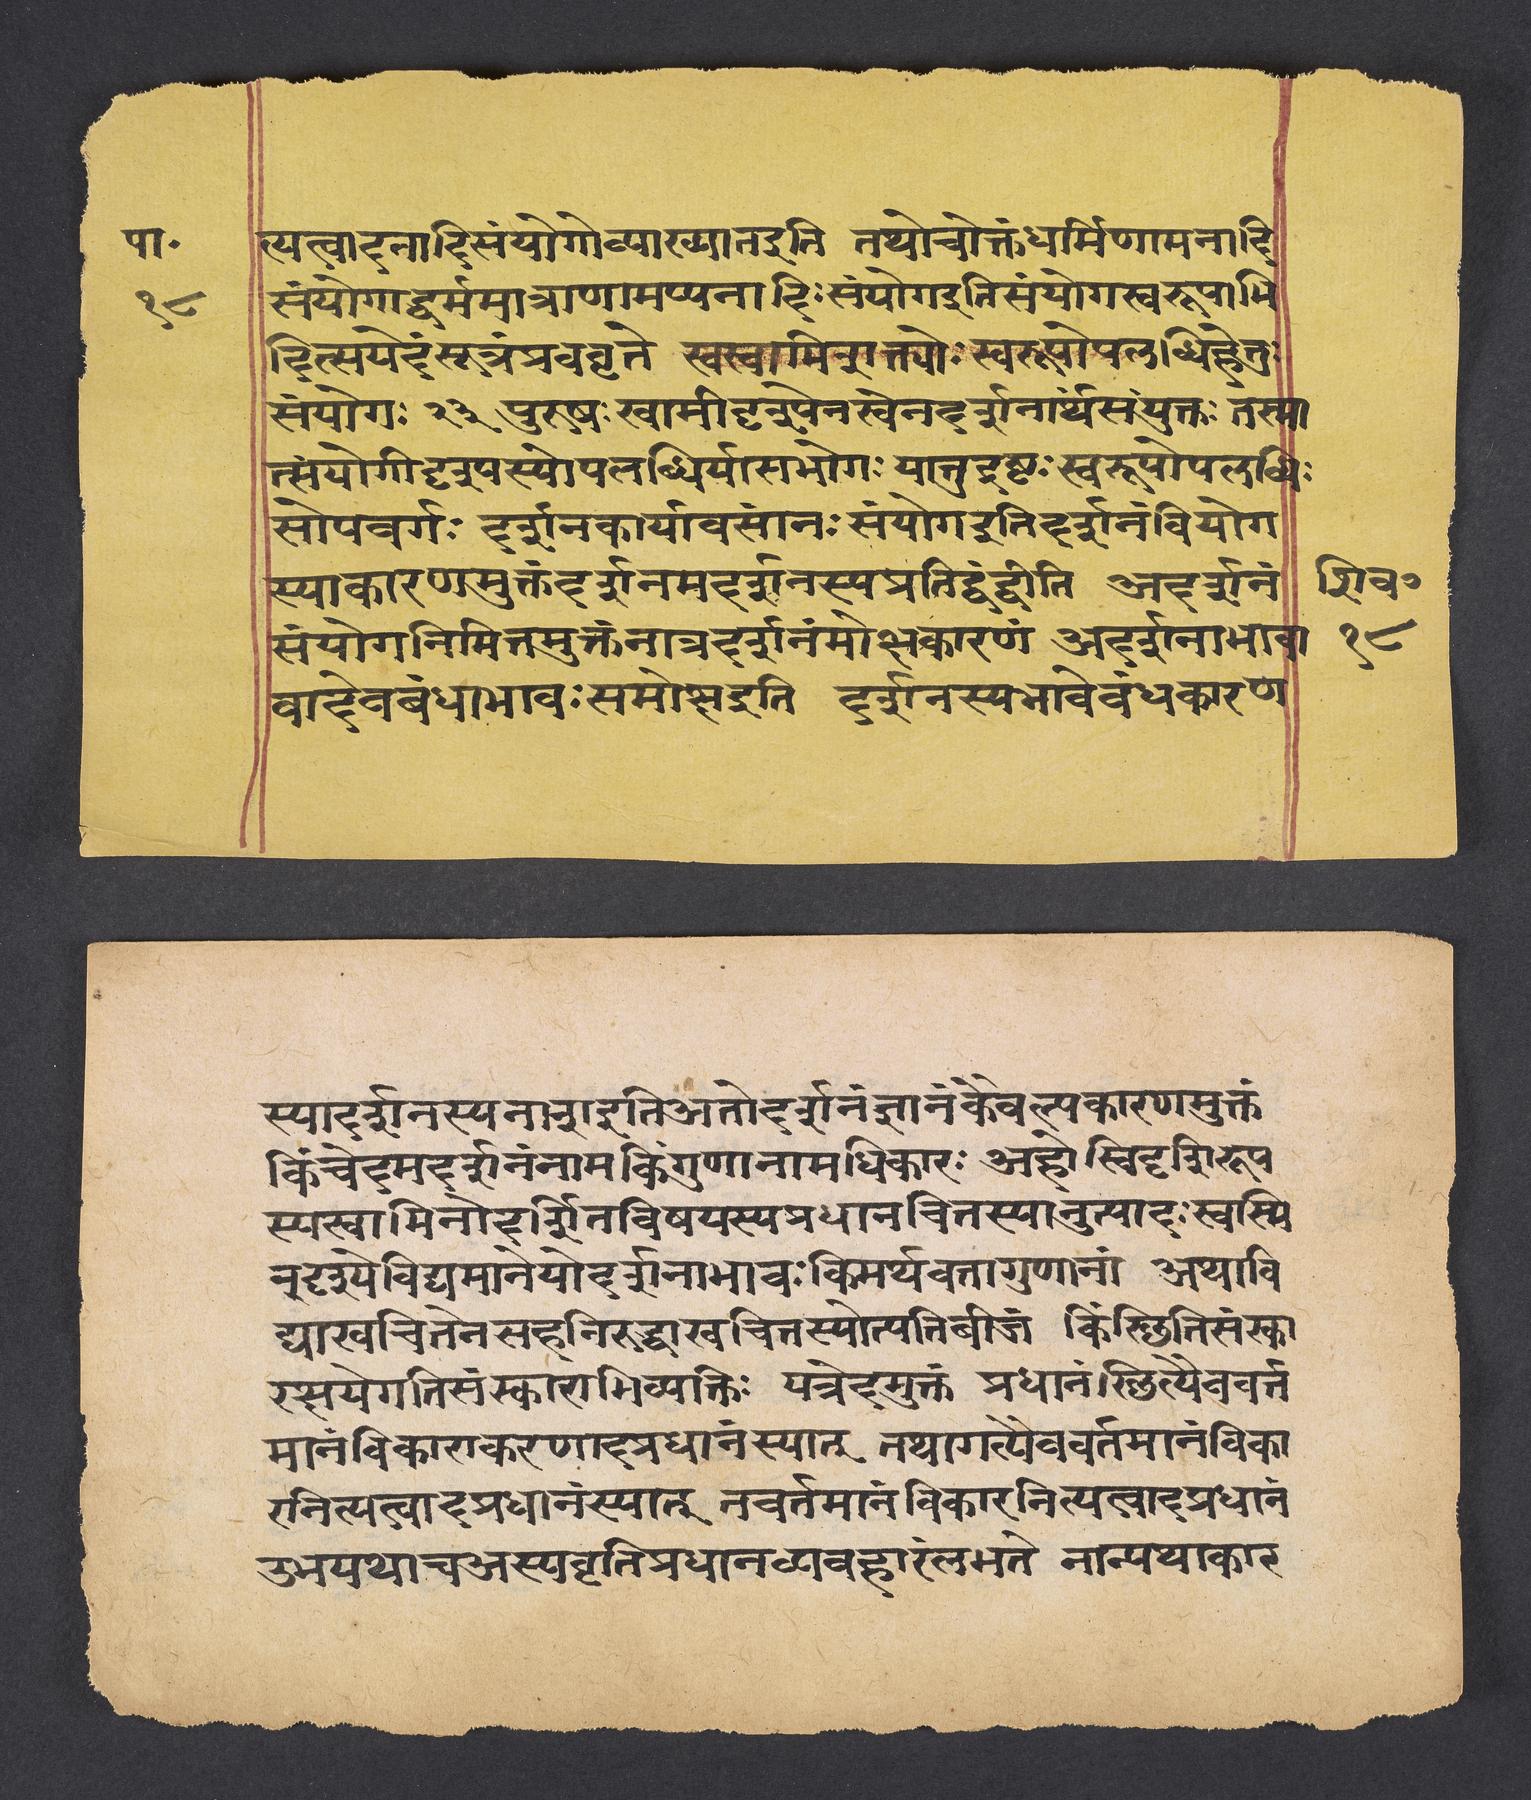 पा॰
त्यत्वादनादिसंयोगोव्याख्यातइति तथोचोक्तंधर्मिणामनादि
१८
संयोगाद्धर्ममात्राणामप्यनादिः संयोगइतिसंयोगस्वरूपाभि
दित्सयेदंसूत्रंप्रववृते स्वस्वामिशक्त्योः स्वरूपोपलब्धिहेतुः
संयोगः २३ पुरुषः स्वामीदृश्येनस्वेनदर्शनार्थंसंयुक्तः तस्मा
त्संयोगीदृश्यस्योपलब्धिर्यासभोगः यातुदृष्टः स्वरूपोपलब्धिः
सोपवर्गः दर्शनकार्यावसांनः संयोगइतिदर्शनंवियोग
स्याकारणमुक्तंदर्शनमदर्शनस्यप्रतिद्वंद्वीति अदर्शनं
शिव॰
संयोगनिमित्तमुक्तंनात्रदर्शनंमोक्षकारणं अदर्शनाभावा
१८
वादेवबंधाभावः समोक्षइति दर्शनस्यभावेबंधकारण
स्यादर्शनस्यनाशइतिअतोदर्शनंज्ञानंकैवल्यकारणमुक्तं
किंचेदमदर्शनंनाम किंगुणानामधिकारः अहोस्विदृशिरूप
स्यस्वामिनोदर्शितविषयस्यप्रधानचित्तस्यानुत्पादः स्वस्मि
नूदृश्येविद्यमानेयोदर्शनाभावः किमर्थवत्तागुणानां अथावि
द्यास्वचितेनसहनिरुद्धास्वचित्तस्योत्पतिबीजं किंस्थितिसंस्का
रक्षयेगतिसंस्काराभिव्यक्तिः यत्रेदमुक्तं प्रधानंस्थित्यैववर्त्त
मानंविकाराकरणादप्रधानंस्यात् तथागत्यैववर्तमानंविका
रनित्यत्वादप्रधानंस्यात् तवर्तमानंविकारनित्यत्वादप्रधानं
उभयथाचअस्यवृतिप्रधानव्यवहारंलभते नान्यथाकार